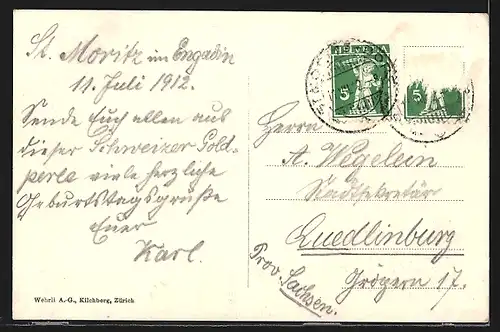 St. Moritz im Engadin
11. Juli 1912.
Sende Euch allen aus
dieser Schweizer Gold-
perle viele herzliche
Geburtstagsgrüße
Euer
Karl.
Wehrli A.-G., Kilchberg, Zürich
5
5
Herrn
A. Wegelein
Stadtsekretär
Quedlinburg
Prov. Sachsen.
17.